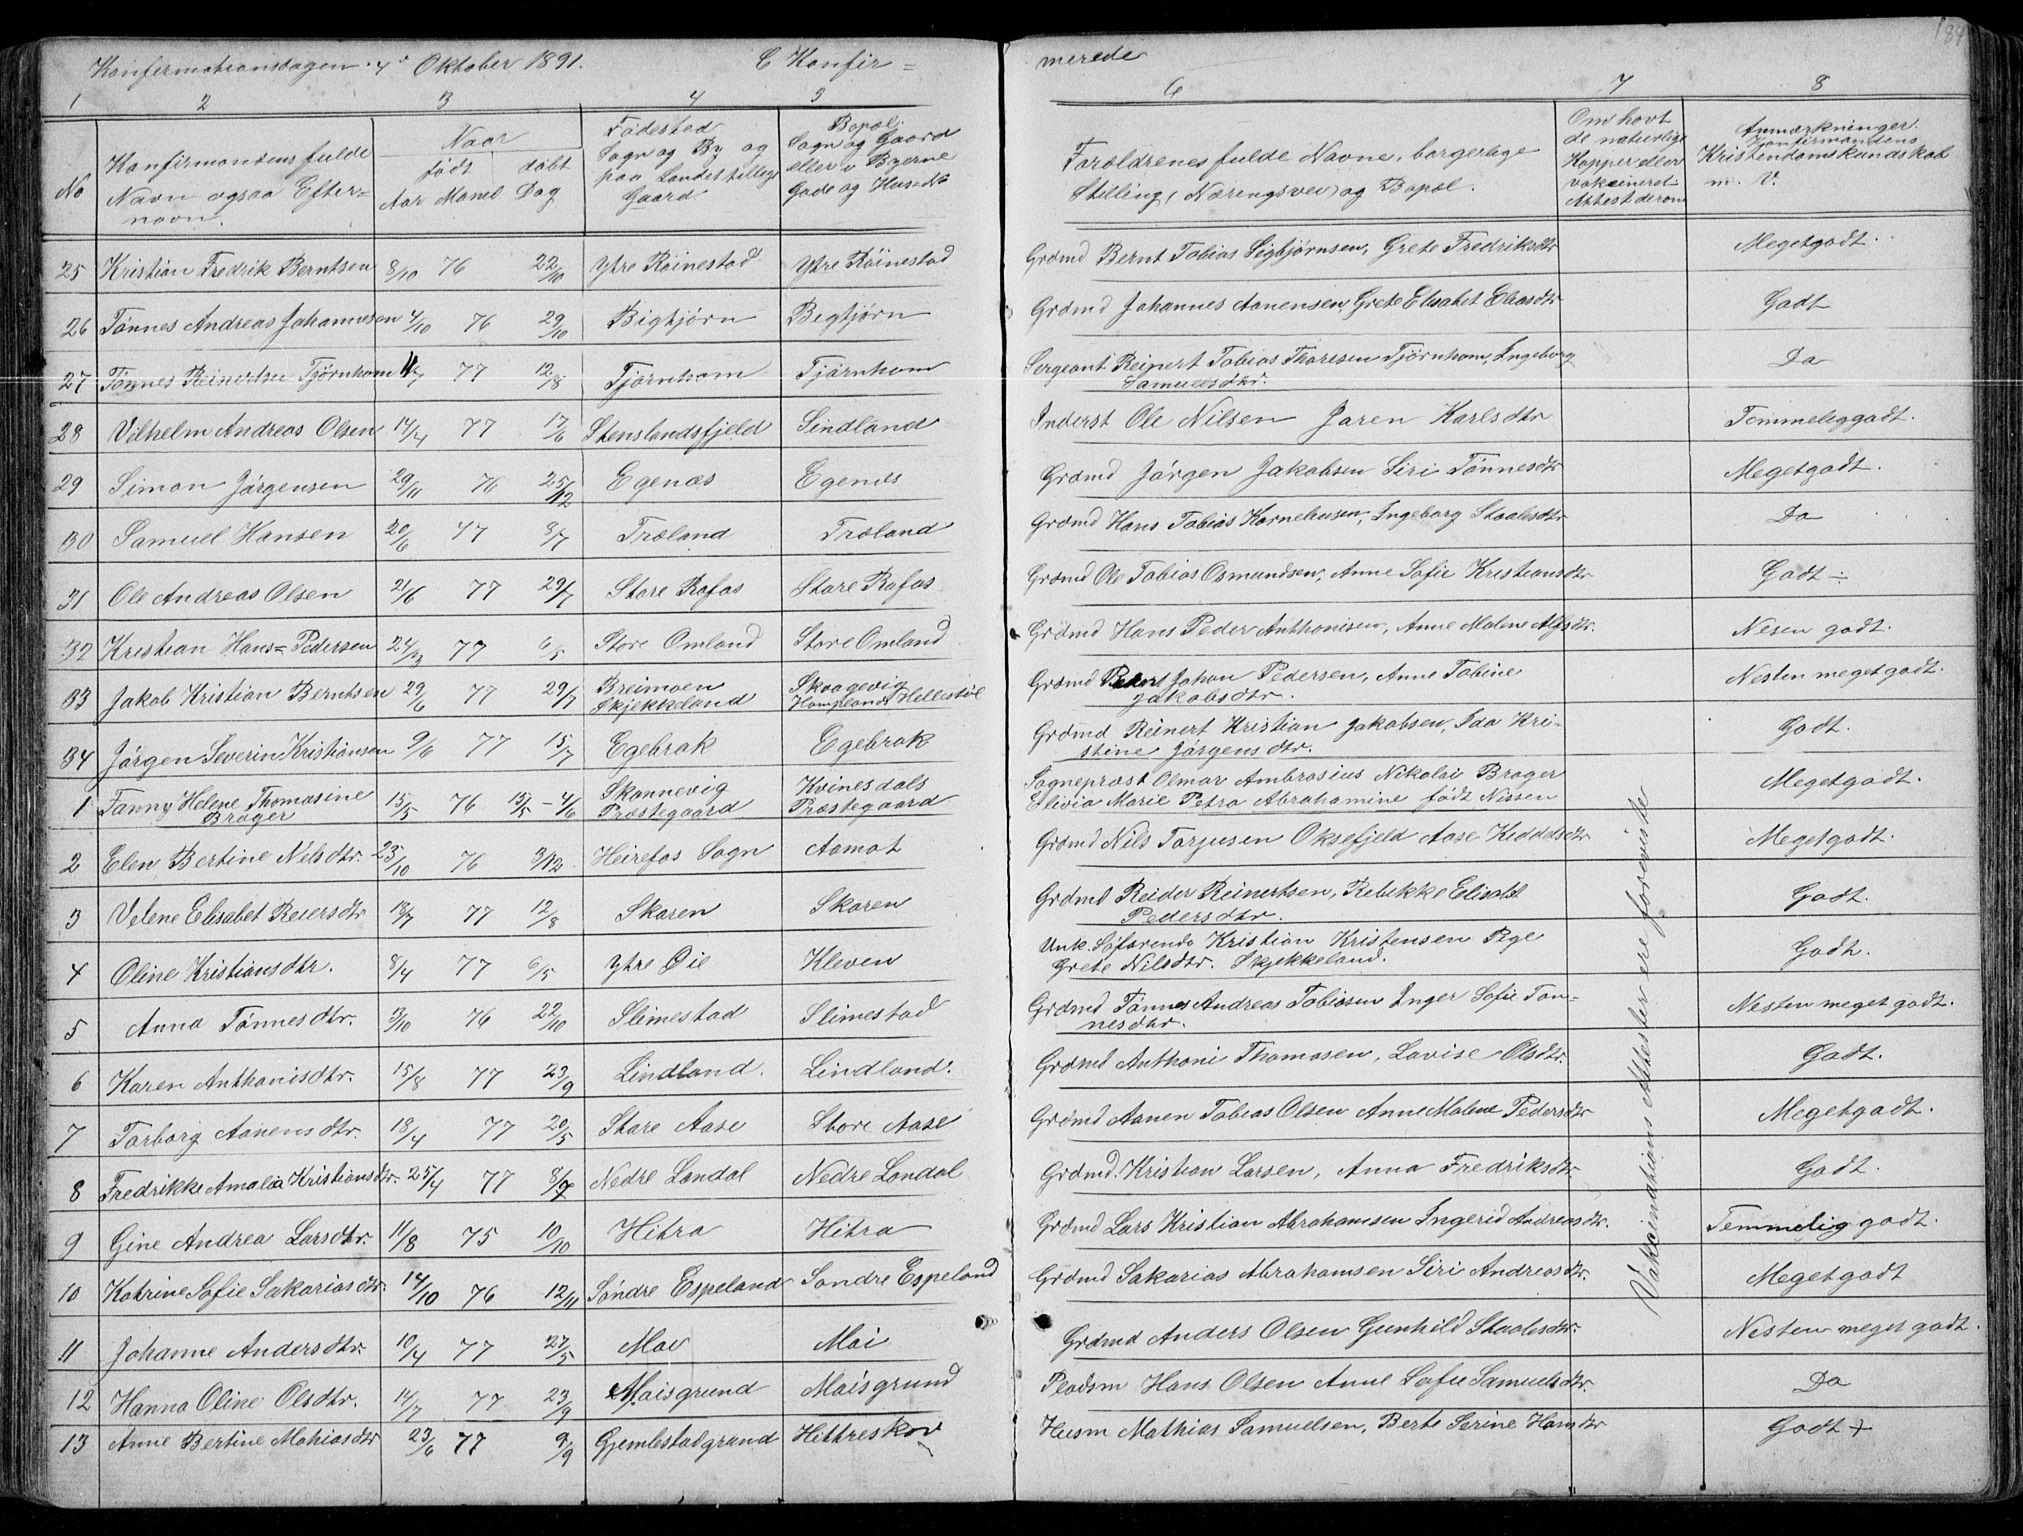 184
Konfirmationsdagen 4de Oktober 1891. C Konfir=
merede
1 2 3 4 5 6 7 8
No
Konfirmandens fulde
Navn ogsaa Efter=
navn.
Naar
født døbt
Aar Maned Dag
Fødested
Sogn og By og
paa Landet tillige
Gaard
Bopæl.
Sogn og Gaard
eller i Byerne
Gade og Hus-No
Forældrenes fulde Navne, borgerlige
Stilling, (Næringsvei) og Bopæl.
Om havt
de naturlige
Kopper eller
vakcineret
Attest derom
Anmærkninger.
Konfirmandens
Kristendomskundskab
m. V.
25 Kristian Fredrik Berntsen 8/10 76 22/10 Ytre Røinestad Ytre Røinestad Grdmd Bernt Tobias Sigbjørnsen, Grete Fredriksdtr Megetgodt.
26 Tønnes Andreas Johannesen 4/10 76 29/10 Bigtjørn Begtjørn Grdmd Johannes Aanensen, Grete Elisabet Eliasdtr Godt
27 Tønnes Reinertsen Tjørnhom 11/7 77 12/8 Tjørnhom Tjørnhom Sergeant Reinert Tobias Thoresen Tjørnhom, Ingeborg
Samuelsdtr. Do
28 Vilhelm Andreas Olsen 14/4 77 17/6 Stenslandsfjeld Sindland Inderst Ole Nilsen Jaren Karlsdtr Temmeliggodt.
29 Simon Jørgensen 29/11 76 25/12 Egenæs Egenæs Grdmd Jørgen Jakobsen Siri Tønnesdtr Megetgodt.
30 Samuel Hansen 20/6 77 8/7 Træland Træland Grdmd Hans Tobias Korneliusen, Ingeborg Staalesdtr Do
31 Ole Andreas Olsen 21/6 77 29/7 Store Rafos Store Rafos Grdmd Ole Tobias Osmundsen, Anne Sofie Kristiansdtr Godt ÷
32 Kristian Hans= Pedersen 24/3 77 6/5 Store Omland Store Omland Grdmd Hans Peder Anthonisen, Anne Malene Alfsdtr. Nesen godt.
33 Jakob Kristian Berntsen 29/6 77 29/7 Breimoen
Skjekkeland Skoagevig
Hompland Hellestøl Grdmd Bernt Johan Pedersen, Anne Tobine
Jakobsdtr. Nesten meget godt.
34 Jørgen Severin Kristiansen 9/6 77 15/7 Egebrok Egebrok Grdmd Reinert Kristian Jakobsen, Ida Kri-
stine Jørgensdtr. Godt.
1 Fanny Helene Thomasine
Brager 15/5 76 15/5 - 4/6 Skonnevig
Præstegaard Kvinesdals
Præstegaard Sognepræst Olmar Ambrosius Nikolai Brager
Elivia Marie Petra Abrahamine født Nissen Megetgodt.
2 Elen Bertine Nilsdtr. 23/10 76 3/12. Heirefos Sogn Aamot Grdmd Nils Torjusen Oksefjeld Aase Keddelsdtr Megetgodt.
3 Velene Elisabet Reiersdtr 13/7 77 12/8 Skoren Skoren Grdmd Reider Reinertsen, Rebekke Elisabet
Pedersdtr. Godt.
4 Oline Kristiansdtr. 8/4 77 6/5 Ytre Øie Kleven Unk. Søfarende Kristian Kristensen Rege
Grete Nilsdtr. Skjekkeland. Godt.
5 Anna Tønnesdtr. 3/10 76 22/10 Slimestad Slimestad Grdmd Tønnes Andreas Tobiasen Inger Sofie Tøn-
nesdtr. Nesten meget godt.
6 Karen Anthonisdtr. 15/8 77 23/9 Lindland. Lindland. Grdmd Anthoni Thomasen, Lovise Olsdtr. Godt.
7 Torborg Aanensdtr. 18/4 77 20/5 Store Aase Store Aase Grdmd Aanen Tobias Olsen Anne Malene Pedersdtr Megetgodt.
8 Fredrikke Amalia Kristiansdtr. 25/4 77 8/7 Nedre Londal Nedre Londal Grdmd. Kristian Larsen, Anna Fredriksdtr. Godt.
9 Gine Andrea Larsdtr. 11/8 75 10/10 Hitra Hitra Grdmd Lars Kristian Abrahamsen Ingerid Andreasdtr. Temmelig godt.
10 Katrine Sofie Sakariasdtr. 14/10 76 12/11 Søndre Espeland Søndre Espeland Grdmd Sakarias Abrahamsen Siri Andreasdtr. Megetgodt
11 Johanne Andersdtr. 10/4 77 27/5 Moi Moi Grdmd Anders Olsen Gunhild Staalesdtr. Nesten meget godt.
12 Hanna Oline Olsdtr. 14/7 77 23/9 Moisgrund Moisgrund Pladsm Hans Olsen Anne Sofie Samuelsdtr. Do
13 Anne Bertine Mathiasdtr 23/6 77 9/9 Gjemlestadgrund Hittreskov Husm Mathias Samuelsen, Berte Serine Hansdtr Godt +
Vakcinations Attester ere foreviste